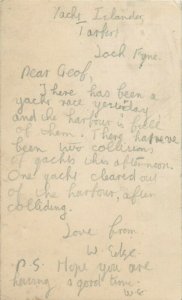 Yacht Islander
Tarbert
Loch Fyne.
Dear Geof,
There has been a
yacht race yesterday
and the harbour is full
of them. There have
been two collisions
of yachts this afternoon.
One yacht cleared out
of the harbour, after
colliding.
Love from
W. Edge.
P.S. Hope you are
having a good time.
W.E.